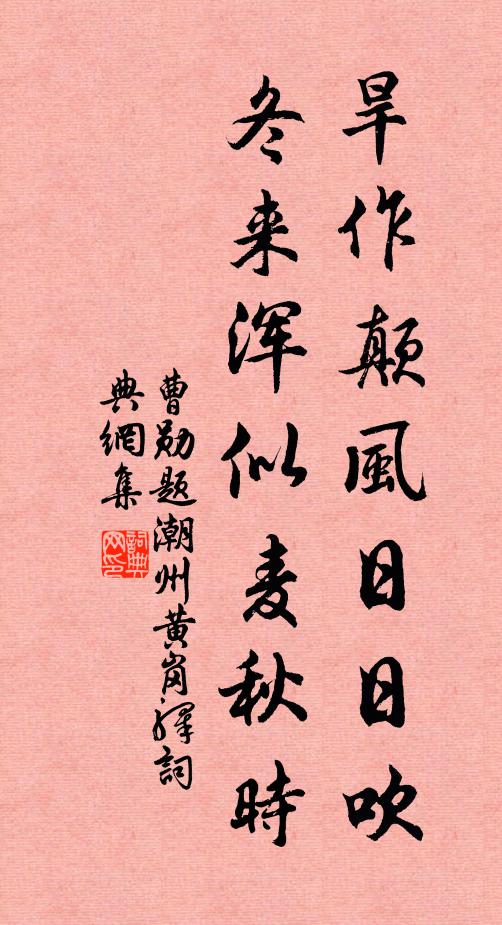 旱作颠風日日吹
冬来浑似麦秋時
曹勋题潮州黄岗驿詞
典網集
詞典
网印